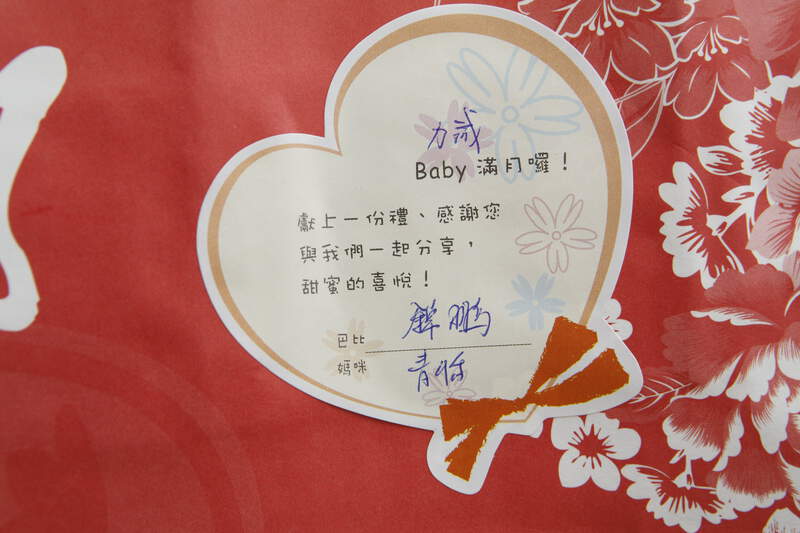 力誠
Baby 滿月囉！
獻上一份禮、感謝您
與我們一起分享，
甜蜜的喜悅！
巴比 鵬
媽咪 青怡